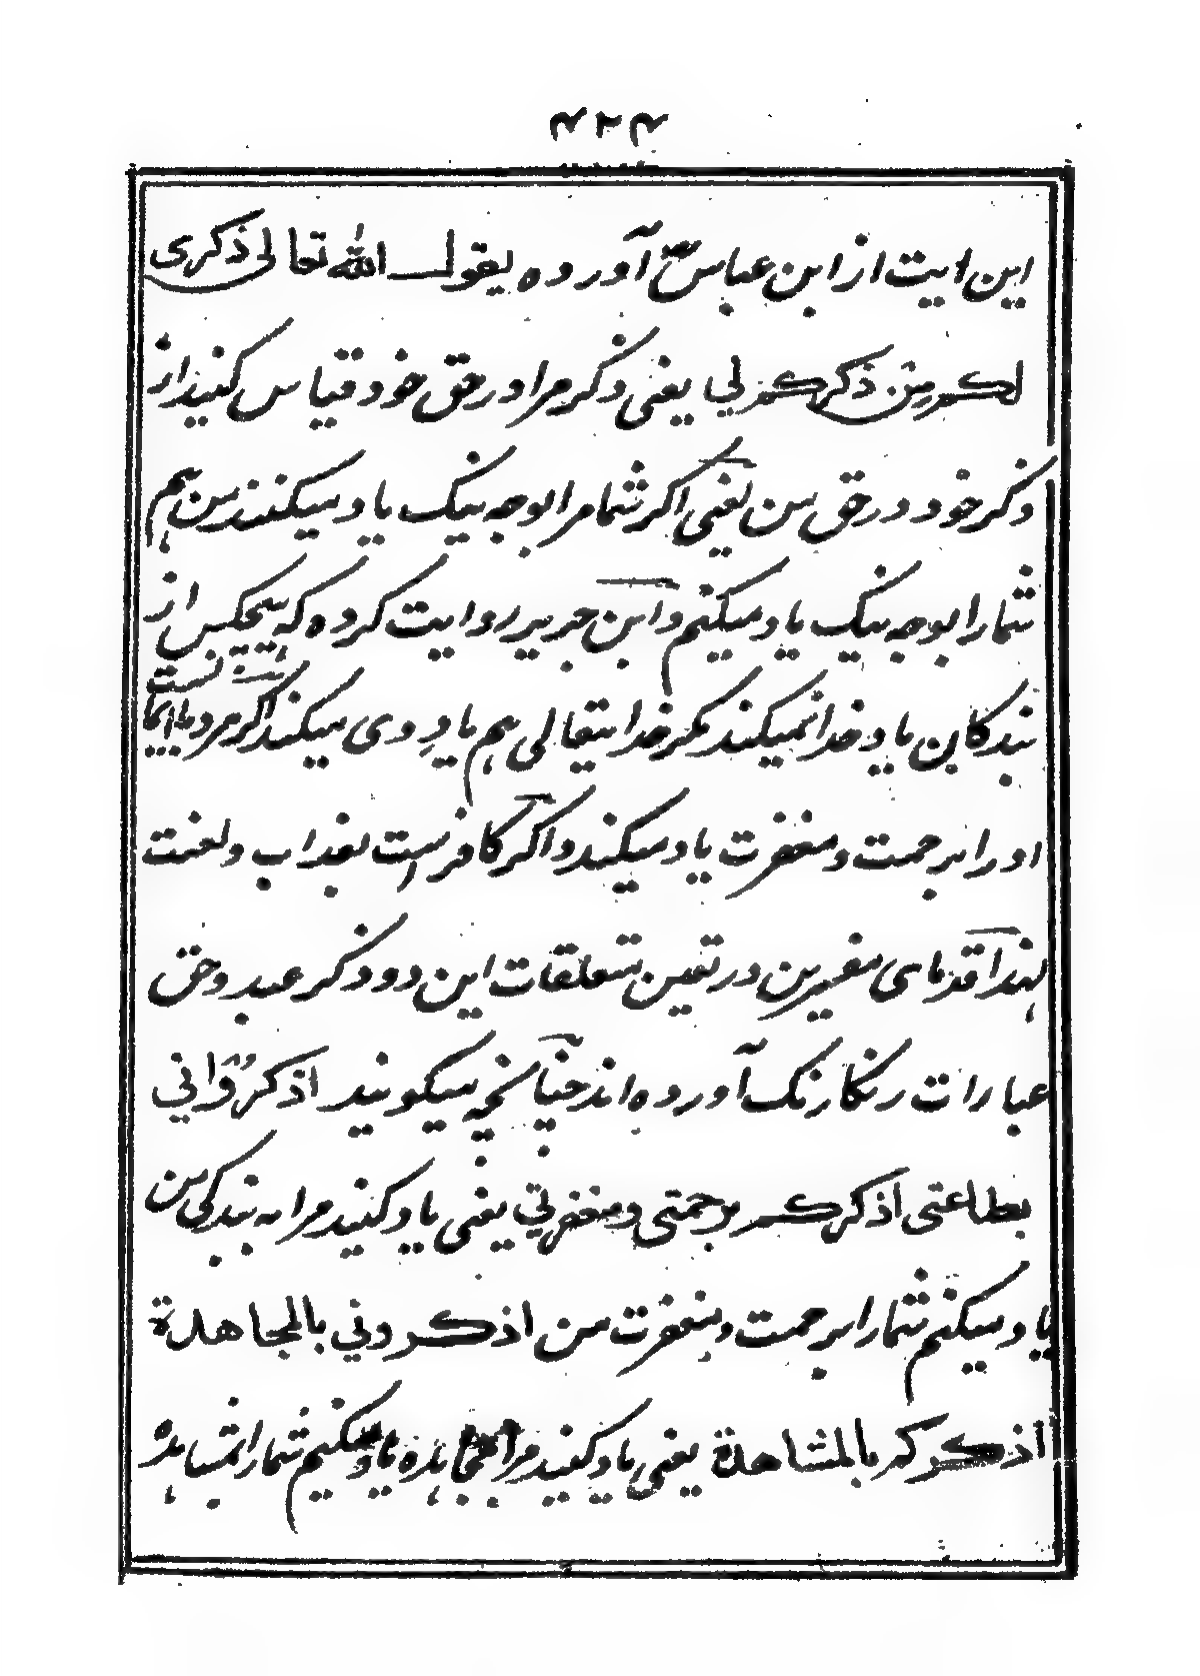 ۴۲۴
این ایت از ابن عباس رض آورده یقول الله تعالی ذکری
لکم من ذکرکم لي یعنی ذکر مرا در حق خود قیاس کنید از
ذکر خود در حق من یعنی اکر شما مرا بوجه نیک یاد میکنند من هم
شمارا بوجه نیک یاد میکنم وابن جریر روایت کرده که هیچکس از
بندکان یاد خدا نمیکند مکر خدایتعالی هم یادِ وی میکند اکر مرد با ایمان است نسبت
اورا برحمت و مغفرت یاد میکند واکر کافر است بعذاب ولعنت
لهذا قدمای مفسرین در تعین متعلقات این دو ذکر عبد وحق
عبارات رنکارنک آورده اند چنانچه میکویند اذکروانی
بطاعتی اذکرکم برحمتی ومغفرتي یعنی یاد کنید مرا به بندکی من
یاد میکنم شمارا برحمت ومغفرت من اذکروني بالمجاهدة
اذکرکم بالمشاهدة یعنی یاد کنید مرا بمجاهده یاد میکنیم شمارا بمشاهده